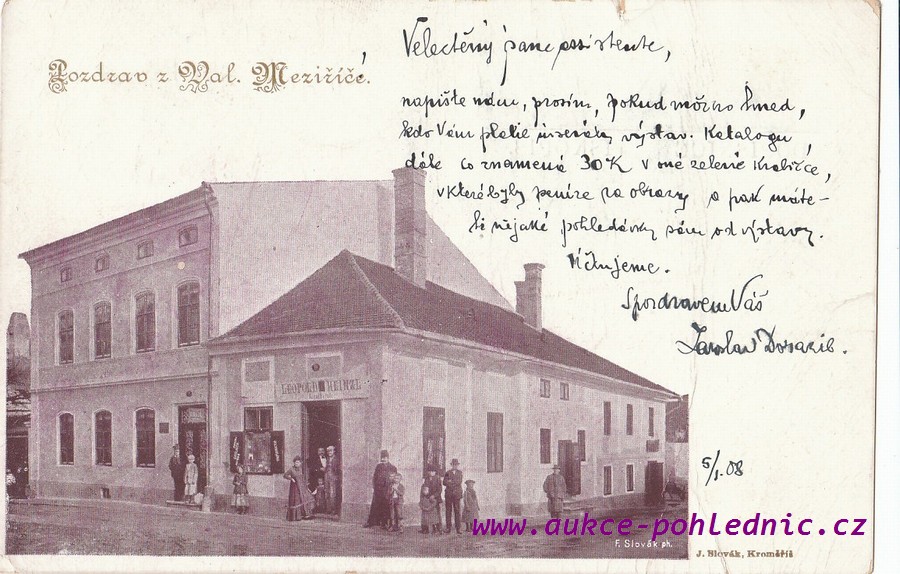 Pozdrav z Val. Meziříčí.
Velectěný pane assistente,
napište nám, prosím, pokud možno hned,
kdo Vám platil inseráty výstav. Katalogu,
dále co znamená 30 K v oné zelené krabičce,
v které byly peníze za obrazy a pak máte-
li nějaké pohledávky sám od výstavy.
Účtujeme.
S pozdravem Váš
Jaroslav
5/1. 08
LEOPOLD HEINZL
www.aukce-pohlednic.cz
F. Slovák ph.
J. Slovák, Kroměříž